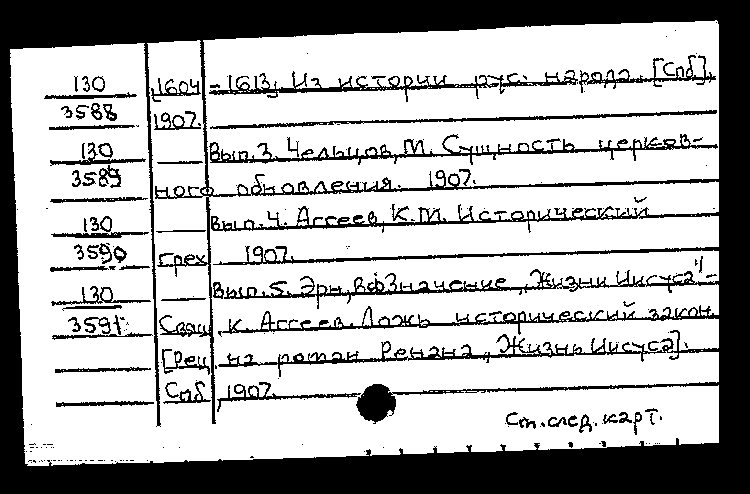 130 1604 - 1613. Из истории рус. народа. [Спб],
3588 1907.
130 Вып. 3. Чельцов, М. Сущность церков-
3589 ного обновления. 1907.
130 Вып. 4. Аггеев, К.М. Исторический
3590 грех. 1907.
130 Вып. 5. Эрн, В.Ф Значение „Жизни Иисуса" -
3591 Свящ. К. Аггеев. Ложь исторический закон
[Рец. на роман Ренана „Жизнь Иисуса].
Спб, 1907.
См. след. карт.